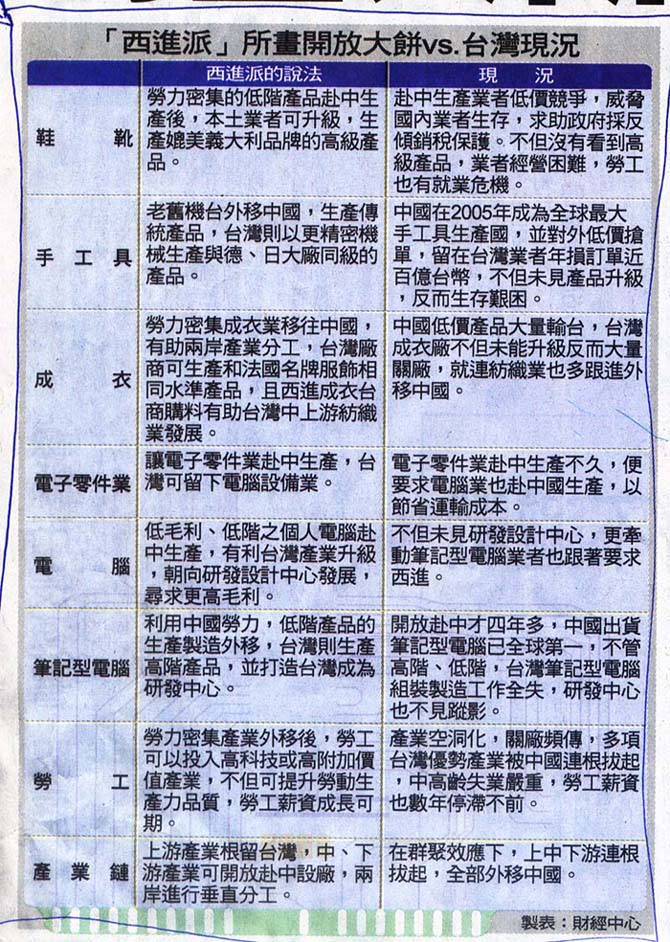 「西進派」所畫開放大餅vs.台灣現況
西進派的說法
現況
鞋靴
勞力密集的低階產品赴中生
產後，本土業者可升級，生
產媲美義大利品牌的高級產
品。
赴中生產業者低價競爭，威脅
國內業者生存，求助政府採反
傾銷稅保護。不但沒有看到高
級產品，業者經營困難，勞工
也有就業危機。
手工具
老舊機台外移中國，生產傳
統產品，台灣則以更精密機
械生產與德、日大廠同級的
產品。
中國在2005年成為全球最大
手工具生產國，並對外低價搶
單，留在台灣業者年損訂單近
百億台幣，不但未見產品升級
，反而生存艱困。
成衣
勞力密集成衣業移往中國，
有助兩岸產業分工，台灣廠
商可生產和法國名牌服飾相
同水準產品，且西進成衣台
商購料有助台灣中上游紡織
業發展。
中國低價產品大量輸台，台灣
成衣廠不但未能升級反而大量
關廠，就連紡織業也多跟進外
移中國。
電子零件業
讓電子零件業赴中生產，台
灣可留下電腦設備業。
電子零件業赴中生產不久，便
要求電腦業也赴中國生產，以
節省運輸成本。
電腦
低毛利、低階之個人電腦赴
中生產，有利台灣產業升級
，朝向研發設計中心發展，
尋求更高毛利。
不但未見研發設計中心，更牽
動筆記型電腦業者也跟著要求
西進。
筆記型電腦
利用中國勞力，低階產品的
生產製造外移，台灣則生產
高階產品，並打造台灣成為
研發中心。
開放赴中才四年多，中國出貨
筆記型電腦已全球第一，不管
高階、低階，台灣筆記型電腦
組裝製造工作全失，研發中心
也不見蹤影。
勞工
勞力密集產業外移後，勞工
可以投入高科技或高附加價
值產業，不但可提升勞動生
產力品質，勞工薪資成長可
期。
產業空洞化，關廠頻傳，多項
台灣優勢產業被中國連根拔起
，中高齡失業嚴重，勞工薪資
也數年停滯不前。
產業鏈
上游產業根留台灣，中、下
游產業可開放赴中設廠，兩
岸進行垂直分工。
在群聚效應下，上中下游連根
拔起，全部外移中國。
製表：財經中心